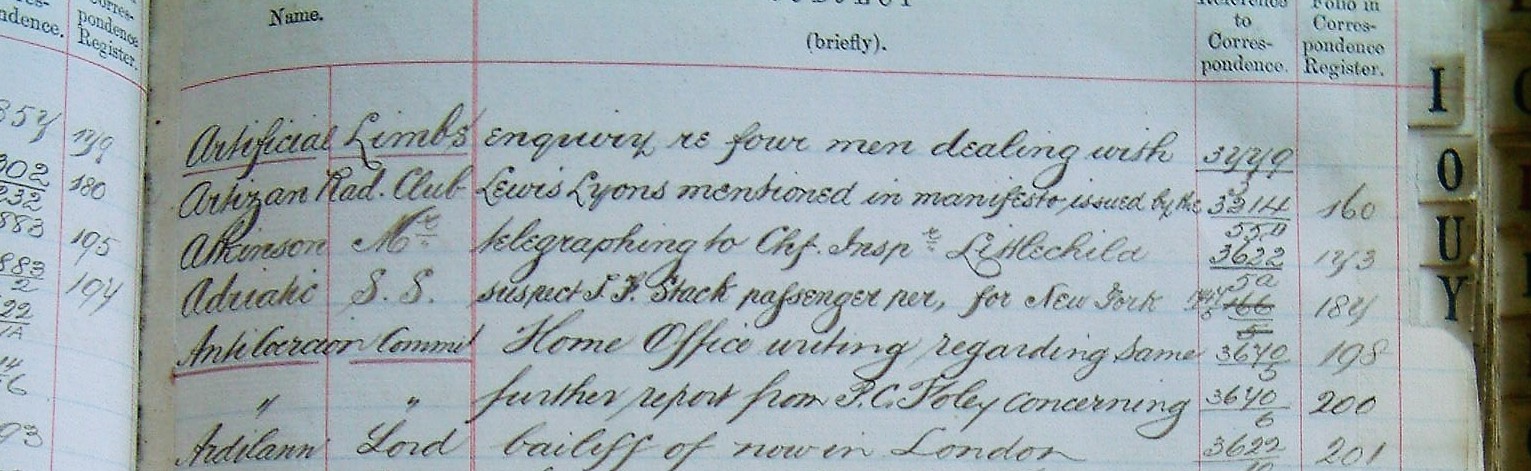 ndence. pondence Register.
Name. (briefly). to Corres- pondence. Folio in Corres- pondence Register.
179
Artificial Limbs enquiry re four men dealing with 3779
302 232 180
Artizan Rad. Club Lewis Lyons mentioned in manifesto, issued by the 3314 160
883 195
Atkinson Mr telegraphing to Chf. Inspr Littlechild 3622/5a 173
194
Adriatic S. S. suspect J. F. Stack passenger per, for New York 166 184
Anti Coercion Commit Home Office writing regarding same 3670/5 198
" " further report from P.C. Foley concerning 3670/6 200
93
Ardilaun Lord bailiff of now in London 3622 201
I
O
U
Y